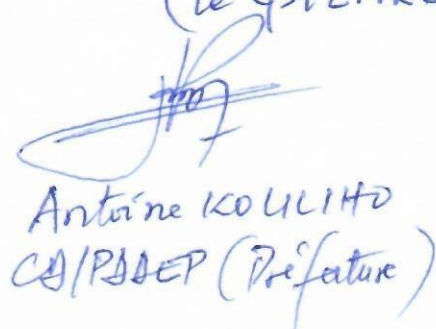 (le
Antoine KOULIHO
CD/PDDEP (Préfecture)